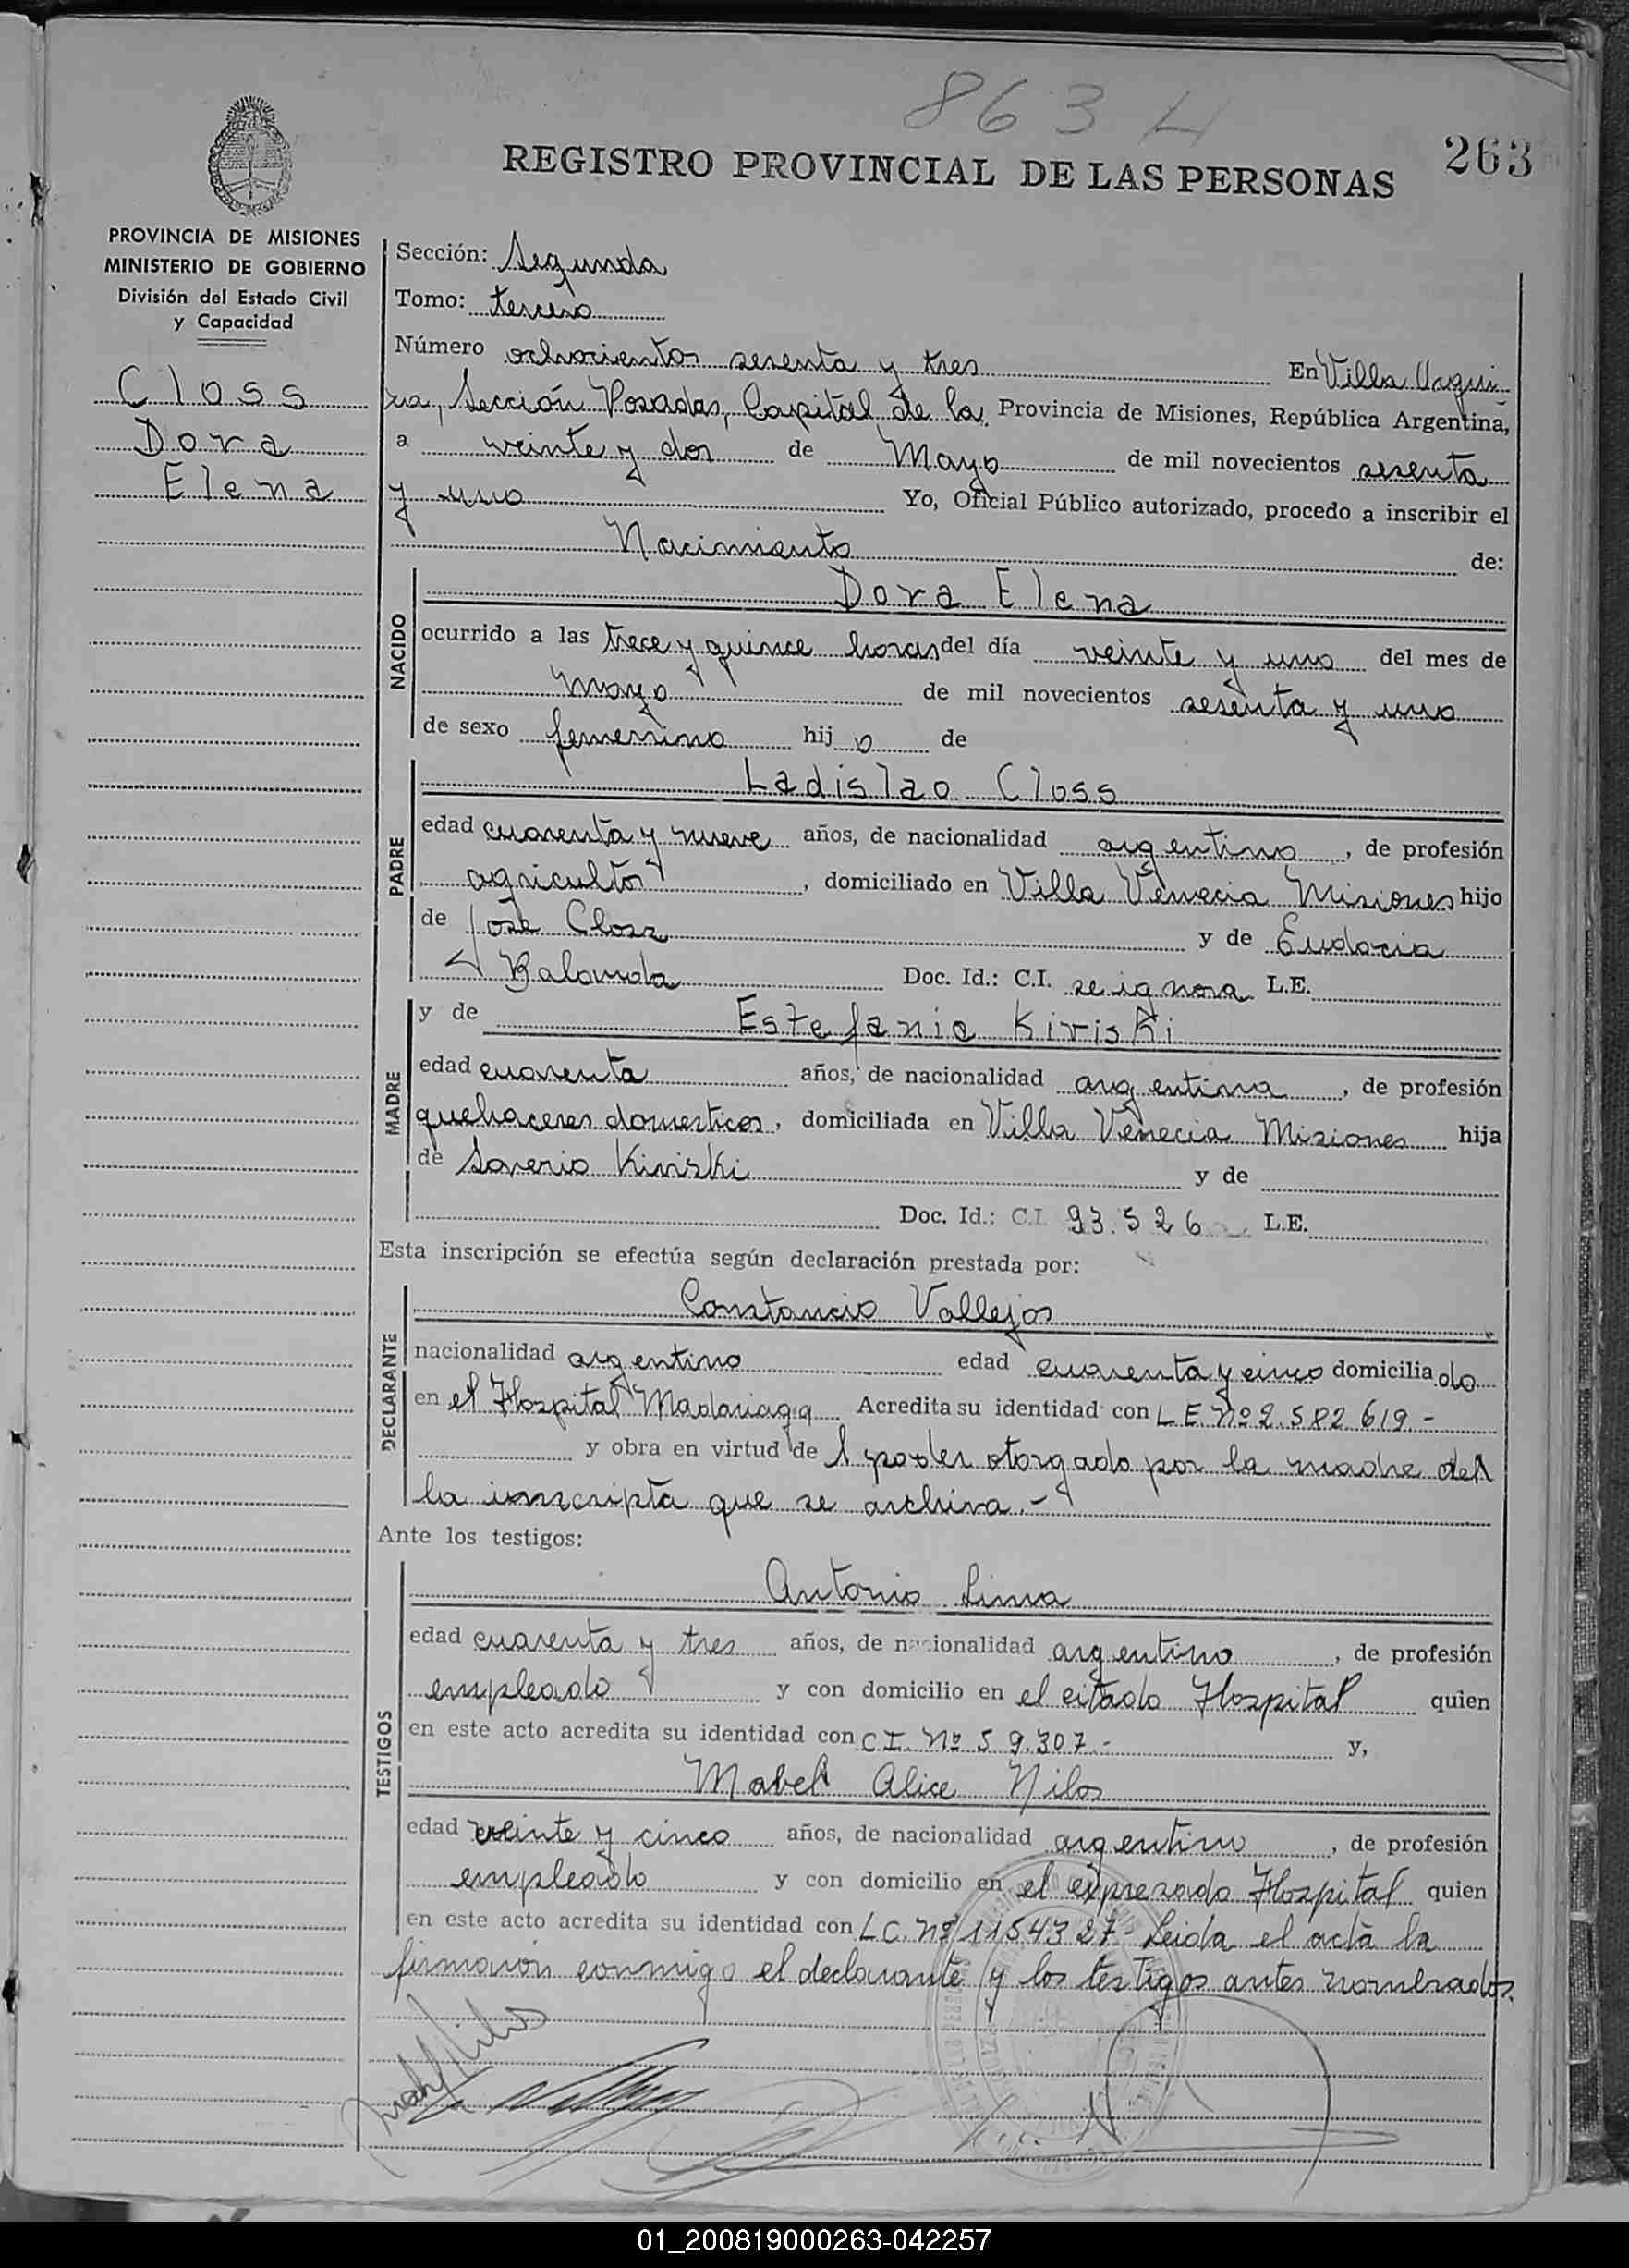 863 H
263
REGISTRO PROVINCIAL DE LAS PERSONAS
PROVINCIA DE MISIONES
MINISTERIO DE GOBIERNO
División del Estado Civil
y Capacidad
Closs
Dora
Elena
Sección: Segunda
Tomo: tercero
Número ochocientos sesenta y tres En Villa Urqui-
za, Sección Posadas, Capital de la Provincia de Misiones, República Argentina,
a veinte y dos de Mayo de mil novecientos sesenta
y uno Yo, Oficial Público autorizado, procedo a inscribir el
Nacimiento de:
NACIDO
Dora Elena
ocurrido a las trece y quince horas del día veinte y uno del mes de
mayo de mil novecientos sesenta y uno
de sexo femenino hij o de
PADRE
Ladislao Closs
edad cuarenta y nueve años, de nacionalidad argentino, de profesión
agricultor, domiciliado en Villa Venecia Misiones hijo
de José Closs y de Eudocia
Balanda Doc. Id.: C.I. se ignora L.E.
MADRE
y de Estefania Kiviski
edad cuarenta años, de nacionalidad argentina, de profesión
quehaceres domesticos, domiciliada en Villa Venecia Misiones hija
de Saverio Kiviski y de
Doc. Id.: C.I. 93.526 L.E.
Esta inscripción se efectúa según declaración prestada por:
DECLARANTE
Constancio Vallejos
nacionalidad argentino edad cuarenta y cinco domiciliado
en el Hospital Madariaga Acredita su identidad con L E Nº 2.582.619.-
y obra en virtud de l poder otorgado por la madre del
la inscripta que se archiva.-
Ante los testigos:
TESTIGOS
Antonio Lima
edad cuarenta y tres años, de nacionalidad argentino, de profesión
empleado y con domicilio en el citado Hospital quien
en este acto acredita su identidad con C I. Nº 59.307.- y,
Mabel Alice Nilos
edad veinte y cinco años, de nacionalidad argentino, de profesión
empleado y con domicilio en el expresado Hospital quien
en este acto acredita su identidad con L C. Nº 1154327- Leida el acta la
firmaron conmigo el declarante y los testigos antes nombrados.
01_200819000263-042257